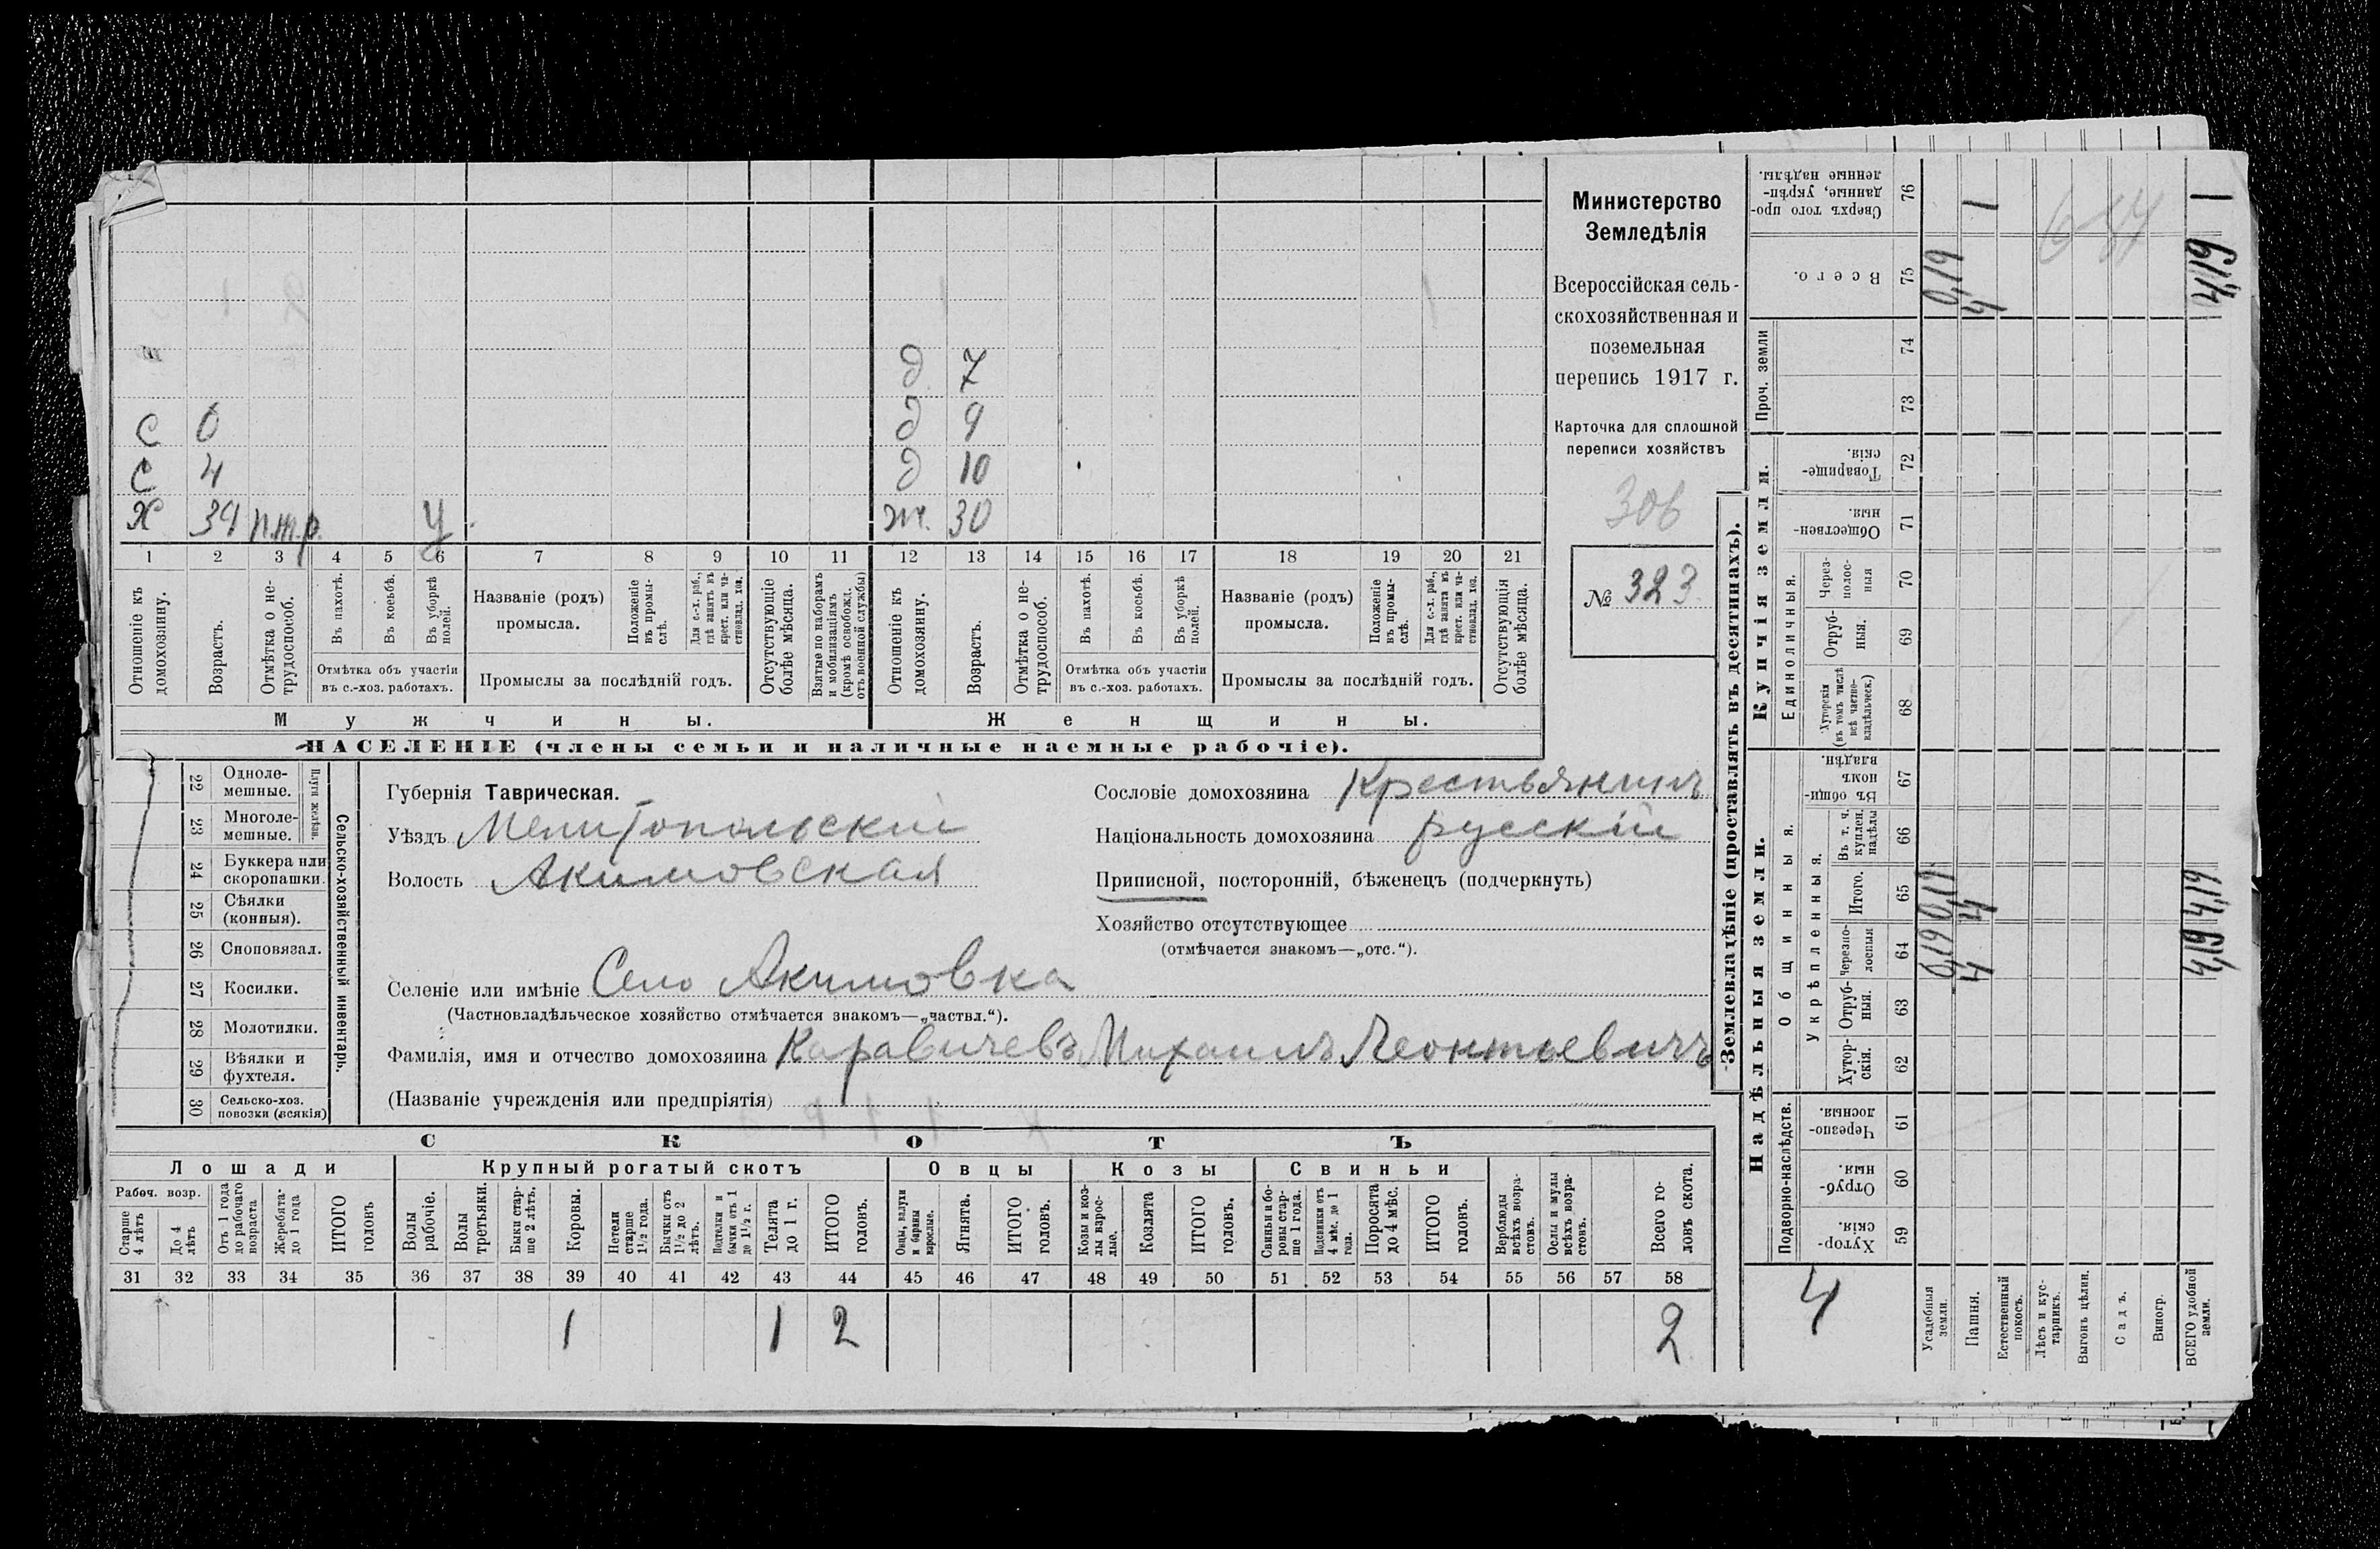 Министерство
Земледѣлія
Всероссійская сель-
скохозяйственная и
поземельная
перепись 1917 г.
Карточка для сплошной
переписи хозяйствъ
306
№ 323
д 7
с 6 д 9
с 4 д 10
х 34 п.т.р. у ж. 30
1 2 3 4 5 6 7 8 9 10 11 12 13 14 15 16 17 18 19 20 21
Отношеніе къ домохозяину.
Возрастъ.
Отмѣтка о не-трудоспособ.
Въ пахотѣ.
Въ косьбѣ.
Въ уборкѣ полей.
Отмѣтка объ участіи
въ с.-хоз. работахъ.
Названіе (родъ)
промысла.
Положеніе въ промы-слѣ.
Для с.-х. раб., гдѣ занятъ въ крест. или ча-стновлад. хоз.
Промыслы за послѣдній годъ.
Отсутствующіе болѣе мѣсяца.
Взятые по наборамъ и мобилизаціямъ (кромѣ освобожд. отъ военной службы)
Отношеніе къ домохозяину.
Возрастъ.
Отмѣтка о не-трудоспособ.
Въ пахотѣ.
Въ косьбѣ.
Въ уборкѣ полей.
Отмѣтка объ участіи
въ с.-хоз. работахъ.
Названіе (родъ)
промысла.
Положеніе въ промы-слѣ.
Для с.-х. раб., гдѣ занята въ крест. или ча-стновлад. хоз.
Промыслы за послѣдній годъ.
Отсутствующія болѣе мѣсяца.
Мужчины. Женщины.
НАСЕЛЕНІЕ (члены семьи и наличные наемные рабочіе).
22 Одноле-мешные.
23 Многоле-мешные.
Плуги желѣзн.
24 Буккера или скоропашки.
25 Сѣялки (конныя).
26 Сноповязал.
27 Косилки.
28 Молотилки.
29 Вѣялки и фухтеля.
30 Сельско-хоз. повозки (всякія)
Сельско-хозяйственный инвентарь.
Губернія Таврическая.
Уѣздъ Мелитопольскій
Волость Акимовская
Сословіе домохозяина Крестьянинъ
Національность домохозяина русскій
Приписной, посторонній, бѣженецъ (подчеркнуть)
Хозяйство отсутствующее
(отмѣчается знакомъ—„отс.“).
Селеніе или имѣніе Село Акимовка
(Частновладѣльческое хозяйство отмѣчается знакомъ—„частвл.“).
Фамилія, имя и отчество домохозяина Каравичевъ Михаилъ Леонтьевичъ
(Названіе учрежденія или предпріятія)
СКОТЪ
Лошади Крупный рогатый скотъ Овцы Козы Свиньи
Рабоч. возр.
Старше 4 лѣтъ
До 4 лѣтъ
Отъ 1 года до рабочаго возраста
Жеребята до 1 года
ИТОГО головъ
Волы рабочіе.
Волы третьяки.
Быки стар-ше 2 лѣтъ.
Коровы.
Нетели старше 1½ года.
Бычки отъ 1½ до 2 лѣтъ.
Подтелки и бычки отъ 1 до 1½ г.
Телята до 1 г.
ИТОГО головъ.
Овцы, валухи и бараны взрослые.
Ягнята.
ИТОГО головъ.
Козы и коз-лы взрос-лые.
Козлята
ИТОГО головъ.
Свиньи и бо-ровы стар-ше 1 года.
Подсвинки отъ 4 мѣс. до 1 года.
Поросята до 4 мѣс.
ИТОГО головъ.
Верблюды всѣхъ возра-стовъ.
Ослы и мулы всѣхъ возра-стовъ.
Всего го-ловъ скота.
31 32 33 34 35 36 37 38 39 40 41 42 43 44 45 46 47 48 49 50 51 52 53 54 55 56 57 58
1 1 2 2
Землевладѣніе (проставлять въ десятинахъ).
Надѣльныя земли.
Купчія земли.
Проч. земли
Подворно-наслѣдств.
Общинныя.
Укрѣпленныя.
Единоличныя.
Хутор-скія. 59
Отруб-ныя. 60
Черезпо-лосныя. 61
Хутор-скія. 62
Отруб-ныя. 63
Черезпо-лосныя 64
Итого. 65
Въ т. ч. куплен. надѣлы 66
Въ общи-номъ владѣн. 67
Хуторскія (въ томъ числѣ всѣ частно-владѣльческ.) 68
Отруб-ныя. 69
Через-полос-ныя 70
Обществен-ныя. 71
Товарище-скія. 72
73
74
Всего. 75
Сверхъ того про-данные, укрѣп-ленные надѣлы. 76
4
Усадебныя земли. 0,19 0,19 0,19
Пашня. 4 4 4 1
Естественный покосъ.
Лѣсъ и кус-тарникъ.
Выгонъ цѣлин.
Садъ.
Виногр.
ВСЕГО удобной земли. 4,19 4,19 4,19 1